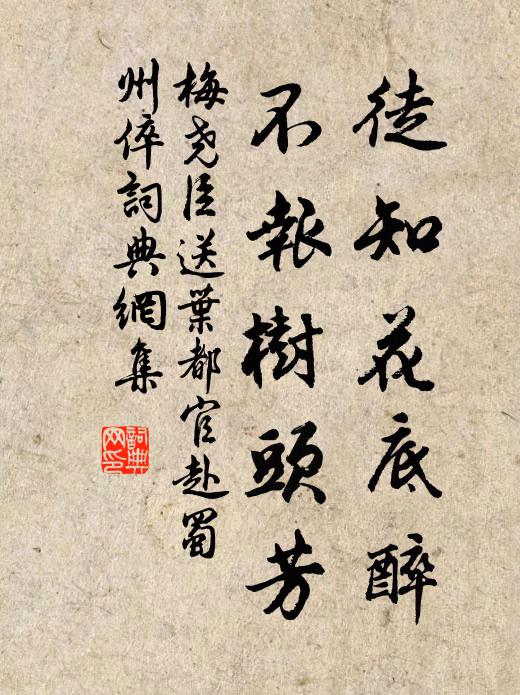 徒知花底醉
不報樹頭芳
梅堯臣送葉都官赴蜀
州倅詞典網集
詞典
网印